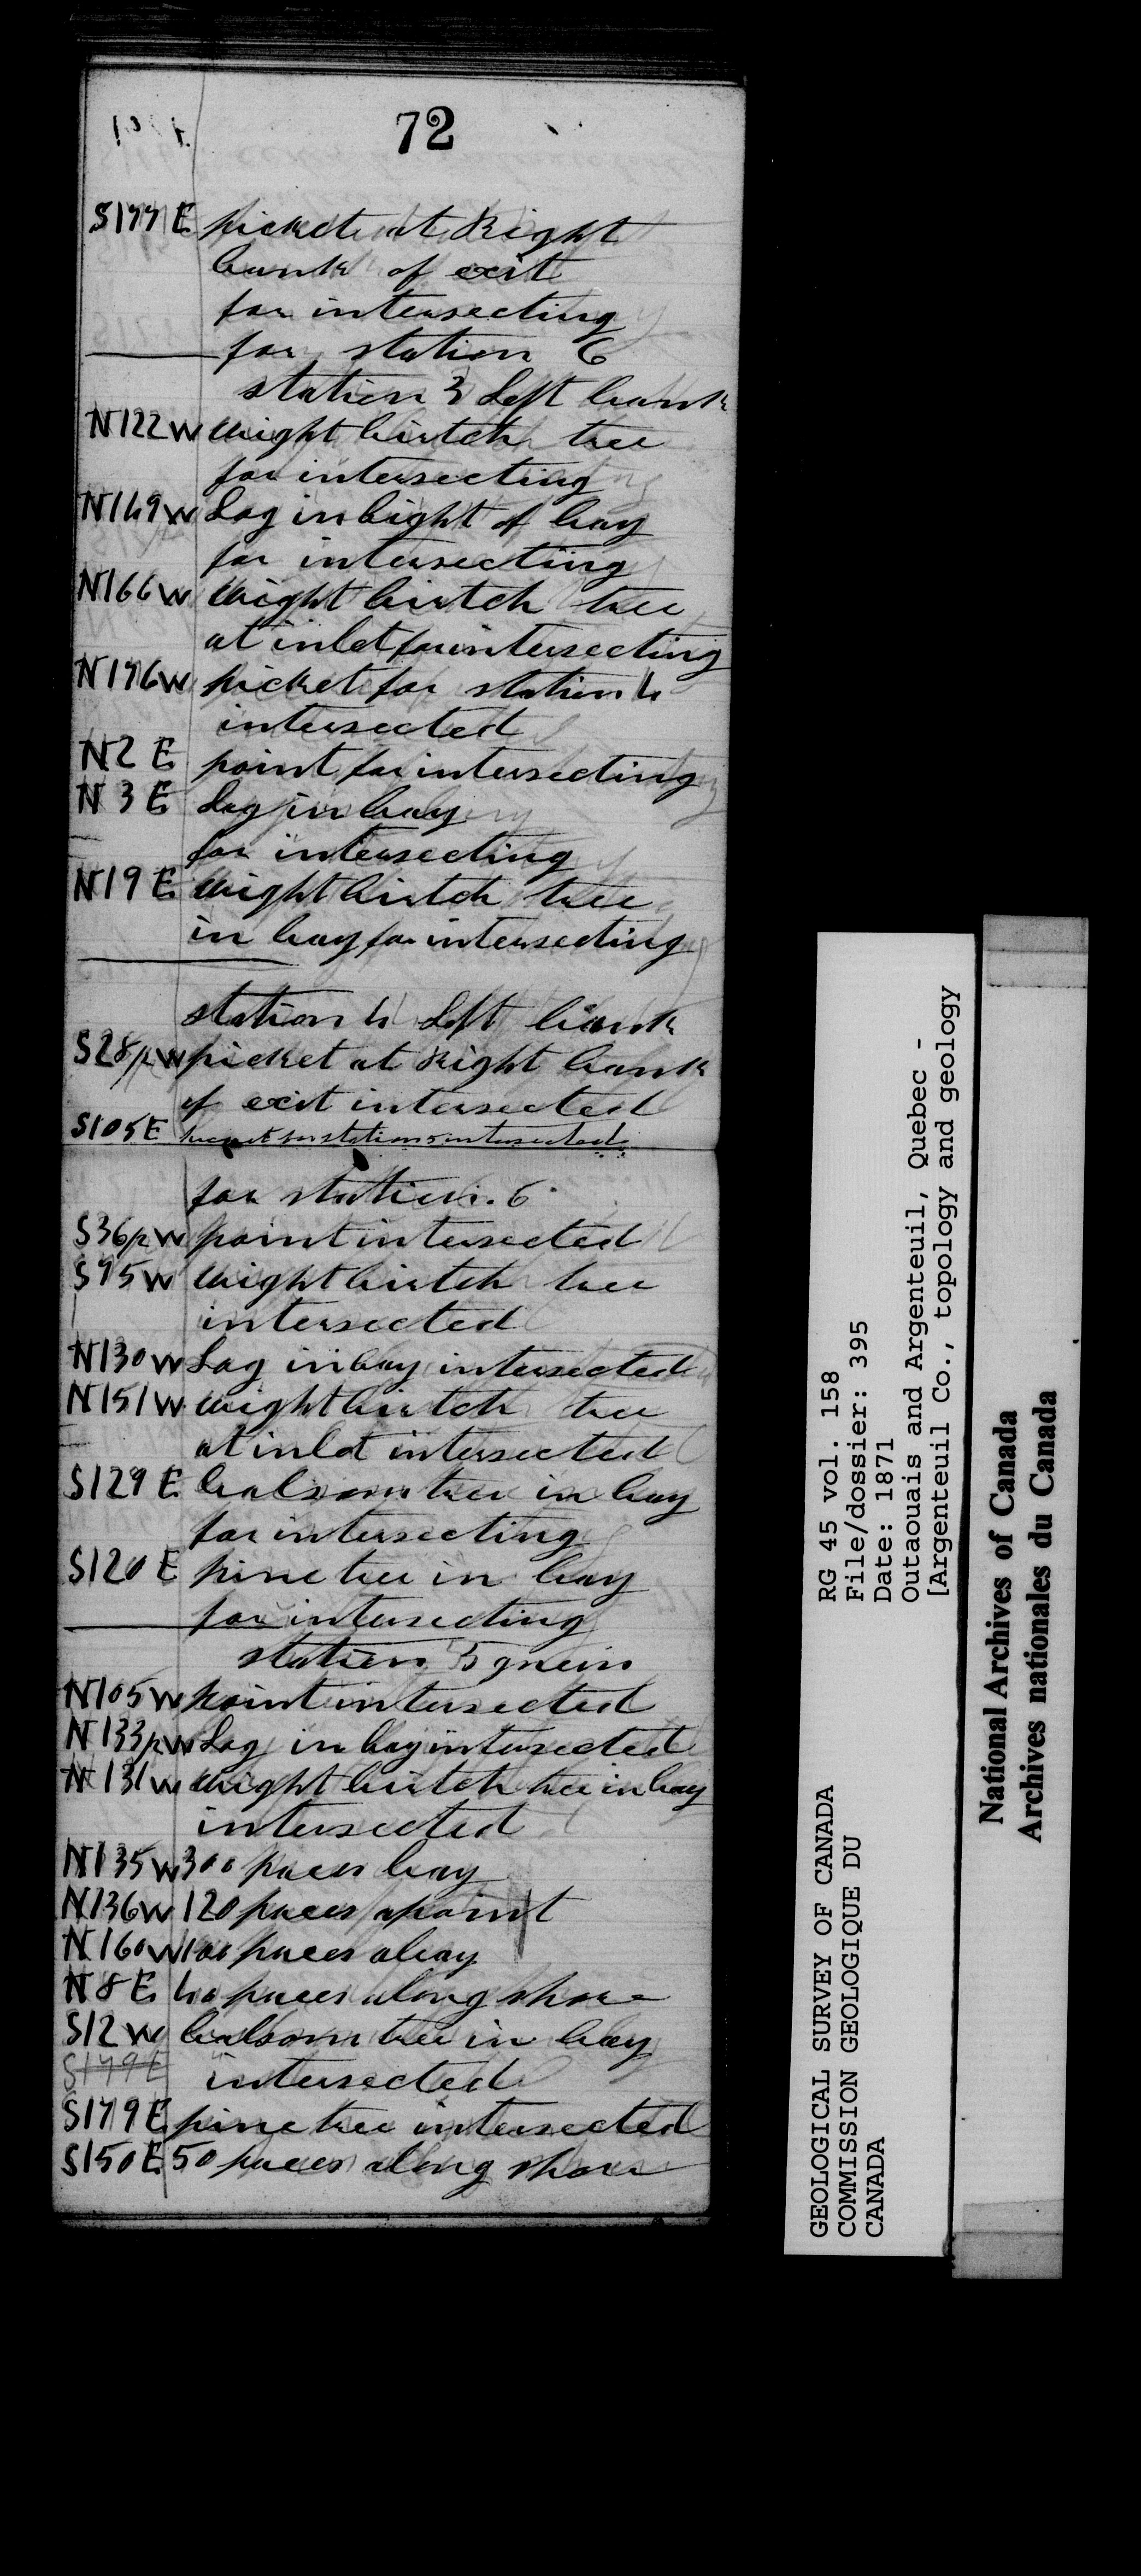 72
S177 E picket at Right
bank of exit
for intersecting
for station 6
station 3 Left bank
N122W wight birtch tree
for intersecting
N149W Log in bight of bay
for intersecting
N166W wight birtch tree
at inlet for intersecting
N176W picket for station 4
intersected
N2 E point for intersecting
N 3 E Log in bay
for intersecting
N19 E wight birtch tree
in bay for intersecting
station 4 Left bank
S28½W picket at Right bank
of exit intersected
S105E picket for station 5 intersected
for station 6
S36½W point intersected
S75W wight birtch tree
intersected
N130W Log in bay intersected
N151W wight birtch tree
at inlet intersected
S129 E balsom tree in bay
for intersecting
S120 E pine tree in bay
for intersecting
station 5 gneis
N105W point intersected
N133½W Log in bay intersected
N131W wight birtch tree in bay
intersected
N135W 300 paces bay
N136W 120 paces apoint
N160W 100 paces abay
N8 E 40 paces along shore
S12W balsom tree in bay
S179E intersected
S179E pine tree intersected
S150E 50 paces along shore
GEOLOGICAL SURVEY OF CANADA
COMMISSION GEOLOGIQUE DU
CANADA
RG 45 vol. 158
File/dossier: 395
Date: 1871
Outaouais and Argenteuil, Quebec -
[Argenteuil Co., topology and geology
National Archives of Canada
Archives nationales du Canada